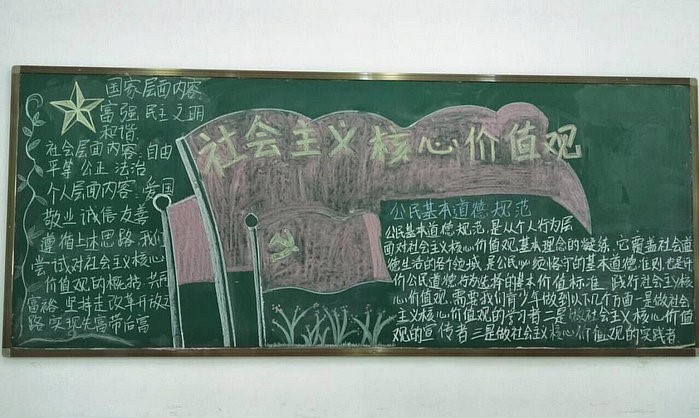 国家层面内容
富强 民主 文明
和谐
社会层面内容:自由
平等 公正 法治
个人层面内容:爱国
敬业 诚信 友善
遵循上述思路,我们
尝试对社会主义核心
价值观的概括 共同
富裕 坚持主改革开放之
路 实现先富带后富
社会主义核心价值观
公民基本道德规范
公民基本道德规范,是从个人行为层
面对社会主义核心价值观基本理念的凝练,它覆盖社会道
德生活的各个领域,是公民必须恪守的基本道德准则,也是评
价公民道德行为选择的基本价值标准 践行社会主义核
心价值观,需要我们青少年做到以下几个方面 一是做社会
主义核心价值观的学习者 二是做社会主义核心价值
观的宣传者 三是做社会主义核心价值观的实践者